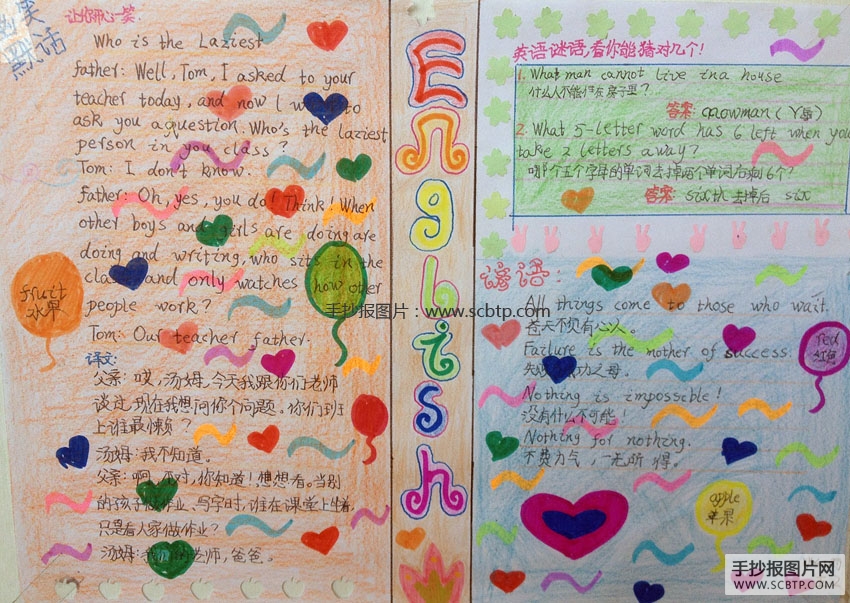 幽默笑话
让你开心一笑
Who is the Laziest
father: Well, Tom, I asked to your
teacher today, and now I w to
ask you a question. Who's the laziest
person in you class?
Tom: I don't know.
father: Oh, yes, you do! Think! When
other boys and girls are doing are
doing and writing, who sits in the
class and only watches how other
people work?
Tom: Our teacher, father.
译文:
父亲: 哎,汤姆,今天我跟你们老师
谈过,现在我想问你个问题。你们班
上谁最懒?
汤姆:我不知道。
父亲:啊,不对,你知道!想想看。当别
的孩子做作业、写字时,谁在课堂上坐着,
只是看人家做作业?
汤姆:我们的老师,爸爸。
fruit
水果
English
英语谜语,看你能猜对几个!
1. What man cannot live in a house
什么人不能住在房子里?
答案:
2. What 5-letter word has 6 left when you
take 2 letters away?
哪个五个字母的单词去掉两个单词后剩6个?
答案: sixth 去掉后 six
谚语:
All things come to those who wait.
苍天不负有心人。
Failure is the mother of success.
失败 成功之母。
Nothing is impossible!
没有什么不可能!
Nothing for nothing.
不费力气,一无所得。
red
红色
apple
苹果
手抄报图片:www.scbtp.com
手抄报图片网
WWW.SCBTP.COM